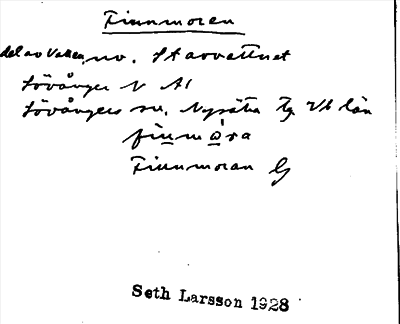 Finnmoran
del av Vallen, no. Storvattnet
Lövånger N A1
Lövångers sn. Nysätra tg Vb län
finmåra
Finnmoran G
Seth Larsson 1928